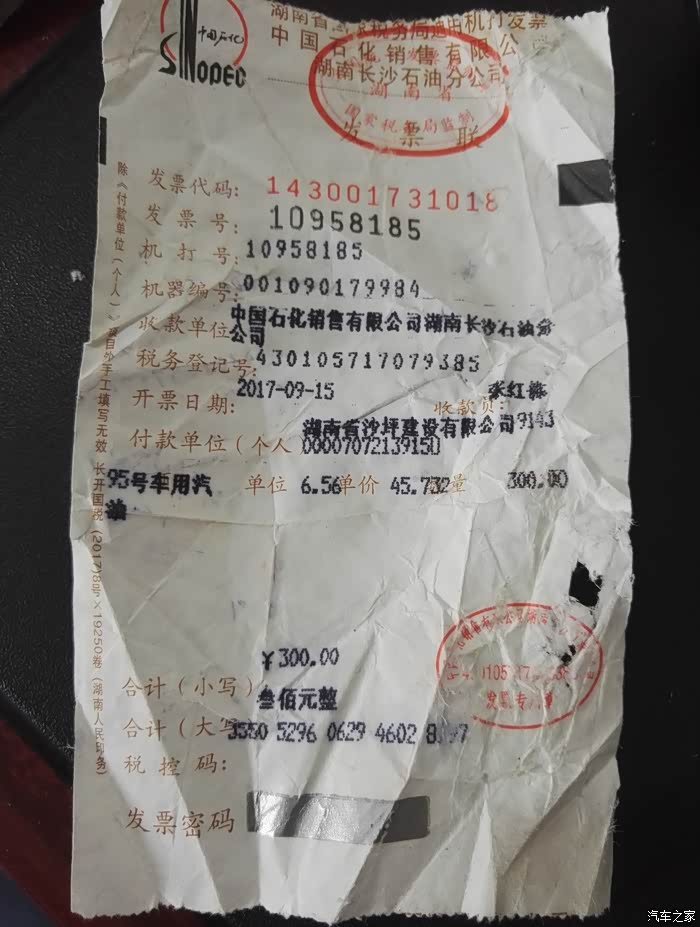 中国石化
SINOPEC
湖南省 税务局通用机打发票
中国石化销售有限公
湖南长沙石油分公司
湖南省
国家税 局监制
发票联
发票代码: 143001731018
发票号: 10958185
机打号: 10958185
机器编号: 001090179984
收款单位: 中国石化销售有限公司湖南长沙石油分
公司
税务登记号: 430105717079385
开票日期: 2017-09-15 收款员: 张红
湖南省沙坪建设有限公司9143
付款单位(个人 00007072139150
95号车用汽 单位 6.56 单价 45.732 量 300.00
油
¥300.00
合计(小写)
叁佰元整
合计(大写
3550 5296 0629 4602 8
税控码:
发票密码
销售有限公司湖
发票专用章
除《付款单位(个人)》项目外手工填写无效
长开国税(2017)8号×19250卷(湖南人民印务)
汽车之家